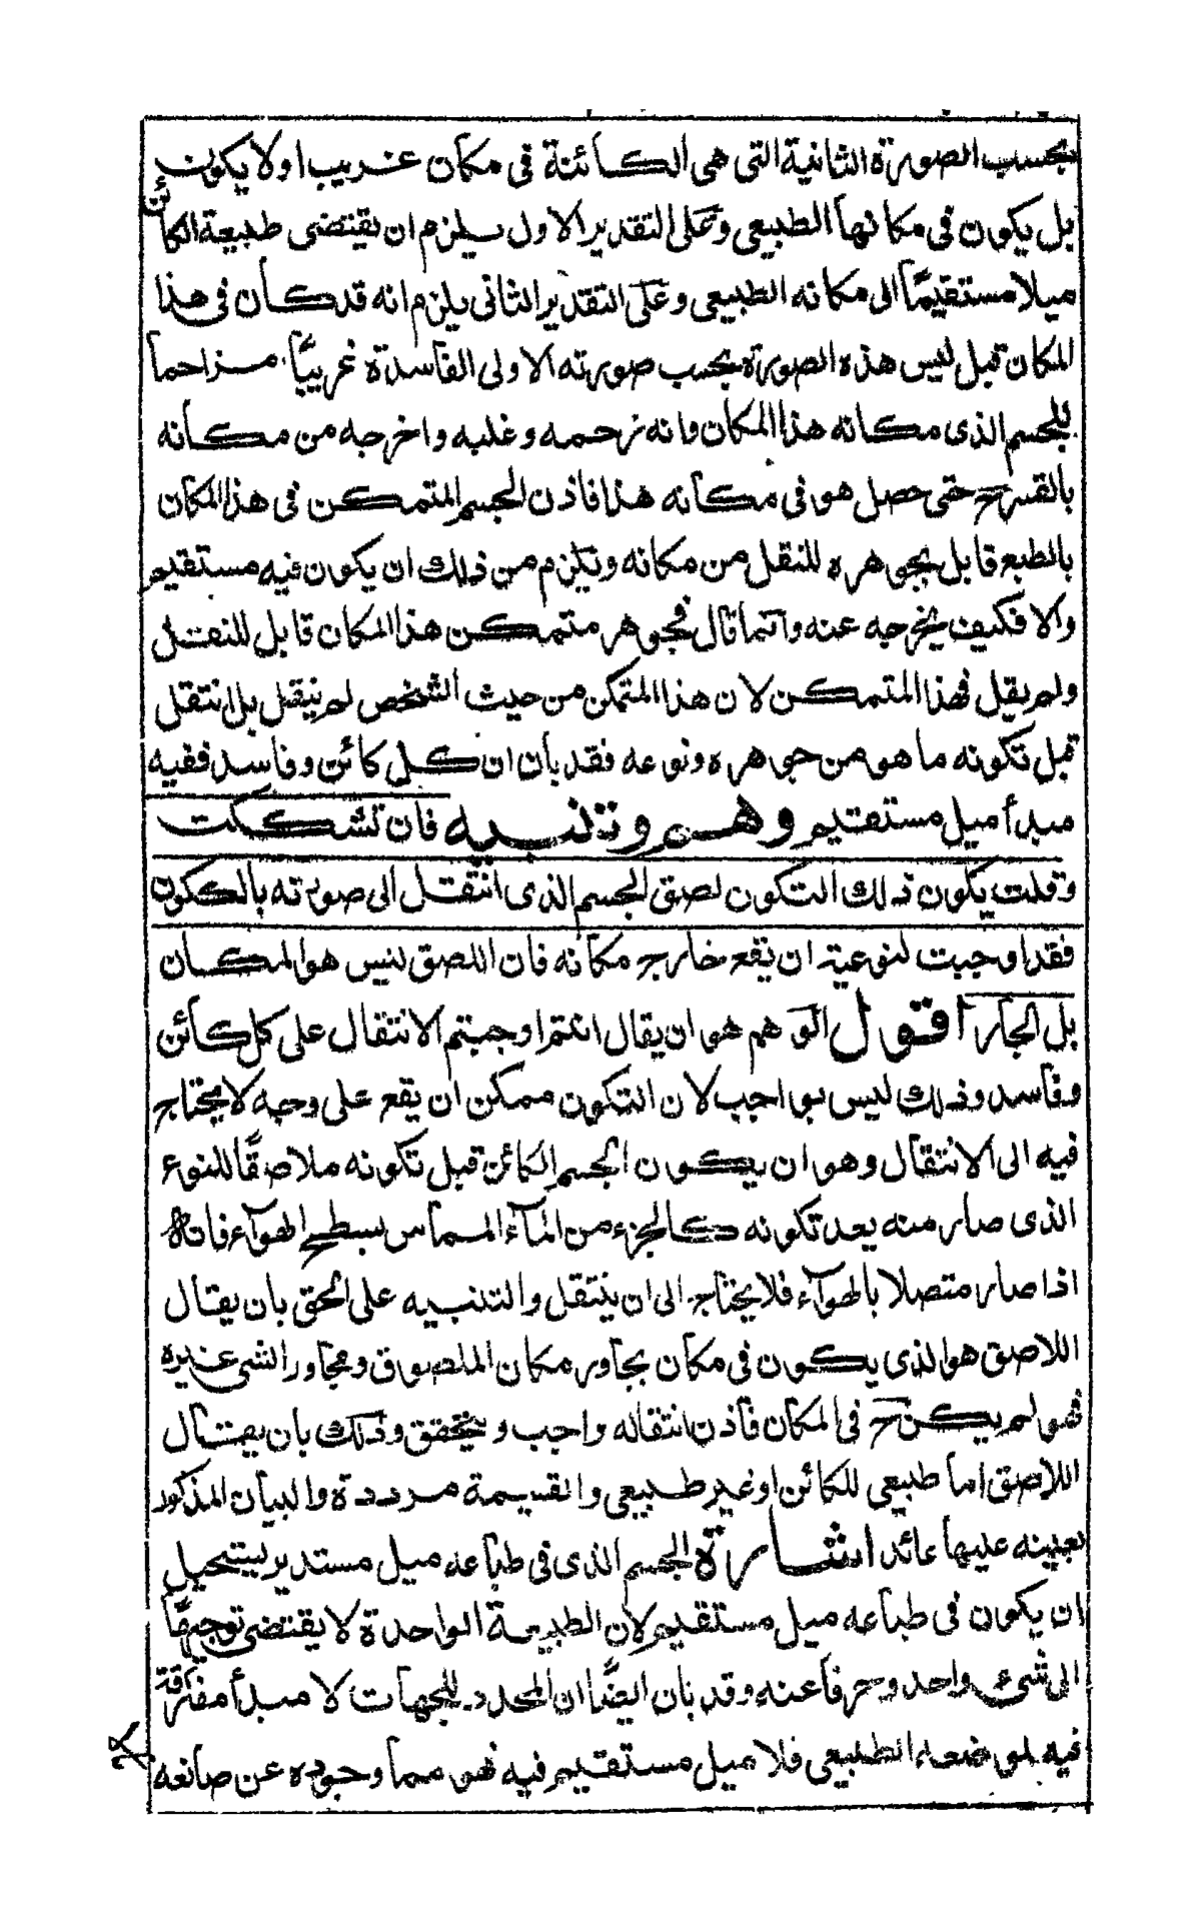 بحسب الصورة الثانية التى هى الكائنة فى مكان غريب اولا يكون
بل يكون فى مكانها الطبيعى وعلى التقدير الاول يلزم ان يقتضى طبيعة الكائن
ميلا مستقيمًا الى مكانه الطبيعى وعلى التقدير الثانى يلزم انه قد كان فى هذا
المكان قبل لبس هذه الصورة بحسب صورته الاولى الفاسدة غريبًا مزاحما
للجسم الذى مكانه هذا المكان وانه زحمه وغلبه واخرجه من مكانه
بالقسر ح حتى حصل هو فى مكانه هذا فاذن الجسم المتمكن فى هذا المكان
بالطبع قابل بجوهره للنقل من مكانه ويلزم من ذلك ان يكون فيه مستقيم
والا فكيف يخرجه عنه وانما قال فجوهر متمكن هذا المكان قابل للنقل
ولم يقل فهذا المتمكن لان هذا المتمكن من حيث الشخص لم ينتقل بل انتقل
قبل تكونه ما هو من جوهره ونوعه فقد بان ان كل كائن وفاسد ففيه
مبدأ ميل مستقيم وهم وتنبيه فان تشككت
وقلت يكون ذلك التكون لصق الجسم الذى انتقل الى صورته بالتكون
فقد اوجبت لنوعيته ان يقع خارج مكانه فان اللصق ليس هو المكان
بل الجار اقول الوهم هو ان يقال انتم اوجبتم الانتقال على كل كائن
وفاسد وذلك ليس بواجب لان التكون ممكن ان يقع على وجه لا يحتاج
فيه الى الانتقال وهو ان يكون الجسم الكائن قبل تكونه ملاصقًا للنوع
الذى صار منه بعد تكونه كالجزء من المآء المماس بسطح الهوآء فانه
اذا صار متصلا بالهوآء فلا يحتاج الى ان ينتقل والتنبيه على الحق بان يقال
اللاصق هو الذى يكون فى مكان يجاور مكان الملصوق ومجاور الشى غيره
فهو لم يكن ح فى المكان فاذن انتقاله واجب ويتحقق وذلك بان يقال
اللاصق اما طبيعى للكائن او غير طبيعى والقسمة مرددة والبيان المذكور
بعينه عليها عائد اشارة الجسم الذى فى طباعه ميل مستدير يستحيل
ان يكون فى طباعه ميل مستقيم لان الطبيعة الواحدة لا يقتضى توجيهًا
الى شئ واحد وحرفا عنه وقد بان ايضًا ان المحدد للجهات لا مبدأ مفارقة
فيه لموضعه الطبيعى فلا ميل مستقيم فيه فهو مما وجوده عن صانعه